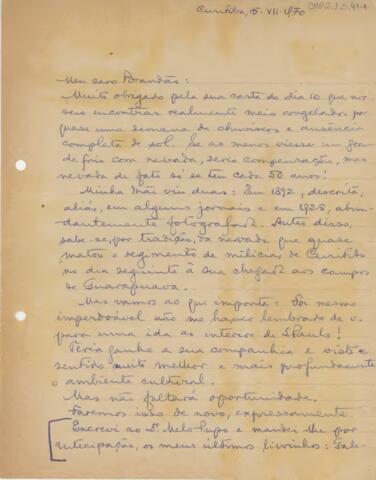 Curitiba, 15-VII-1970
CMP2.1.5.41-1
Meu caro Brandão:
Muito obrigado pela sua carta do dia 10 que nos
veio encontrar realmente meio congelados por
quase uma semana de chuviscos e ausência
completa de sol. Se ao menos viesse um gran-
de frio com nevada, seria compensração, mas
nevada de fato só se tem cada 50 anos!
Minha Mãe viu duas: Em 1892, descrita,
aliás, em alguns jornais e em 1928, abun-
dantemente fotografada. Antes disso,
sabe-se, por tradição, da nevada que quase
matou o regimento de milícias de Curitiba
no dia seguinte à sua chegada aos campos
de Guarapuava.
Mas vamos ao que importa: Foi mesmo
imperdoável não me haver lembrado de v.
para uma ida ao interior de S. Paulo!
Teria ganho a sua companhia e visto e
sentido muito melhor e mais profundamente
o ambiente cultural.
Mas não faltará oportunidade.
Faremos isso de novo, expressamente.
Escrevi ao Dr. Melo Pupo e mandei-lhe por
anticipação, os meus últimos livrinhos: Fale-